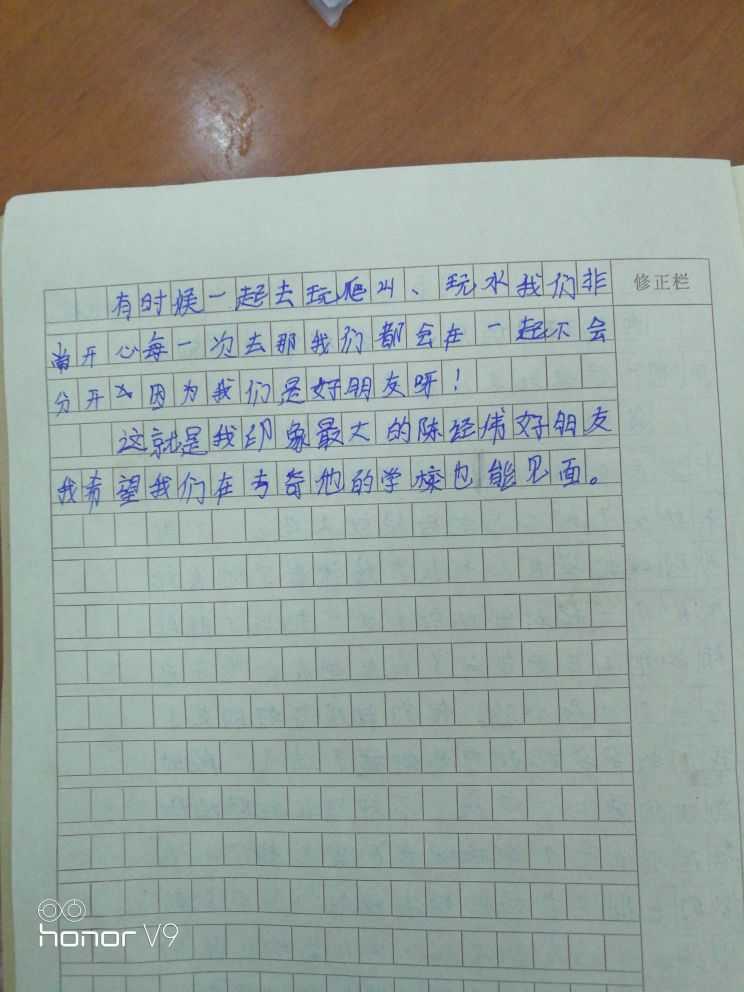 有时候一起去玩爬山、玩水我们非
常开心每一次去那我们都会在一起不会
分开因为我们是好朋友呀！
这就是我印象最大的陈经纬好朋友
我希望我们在考奇他的学校也能见面。
修正栏
honor V9